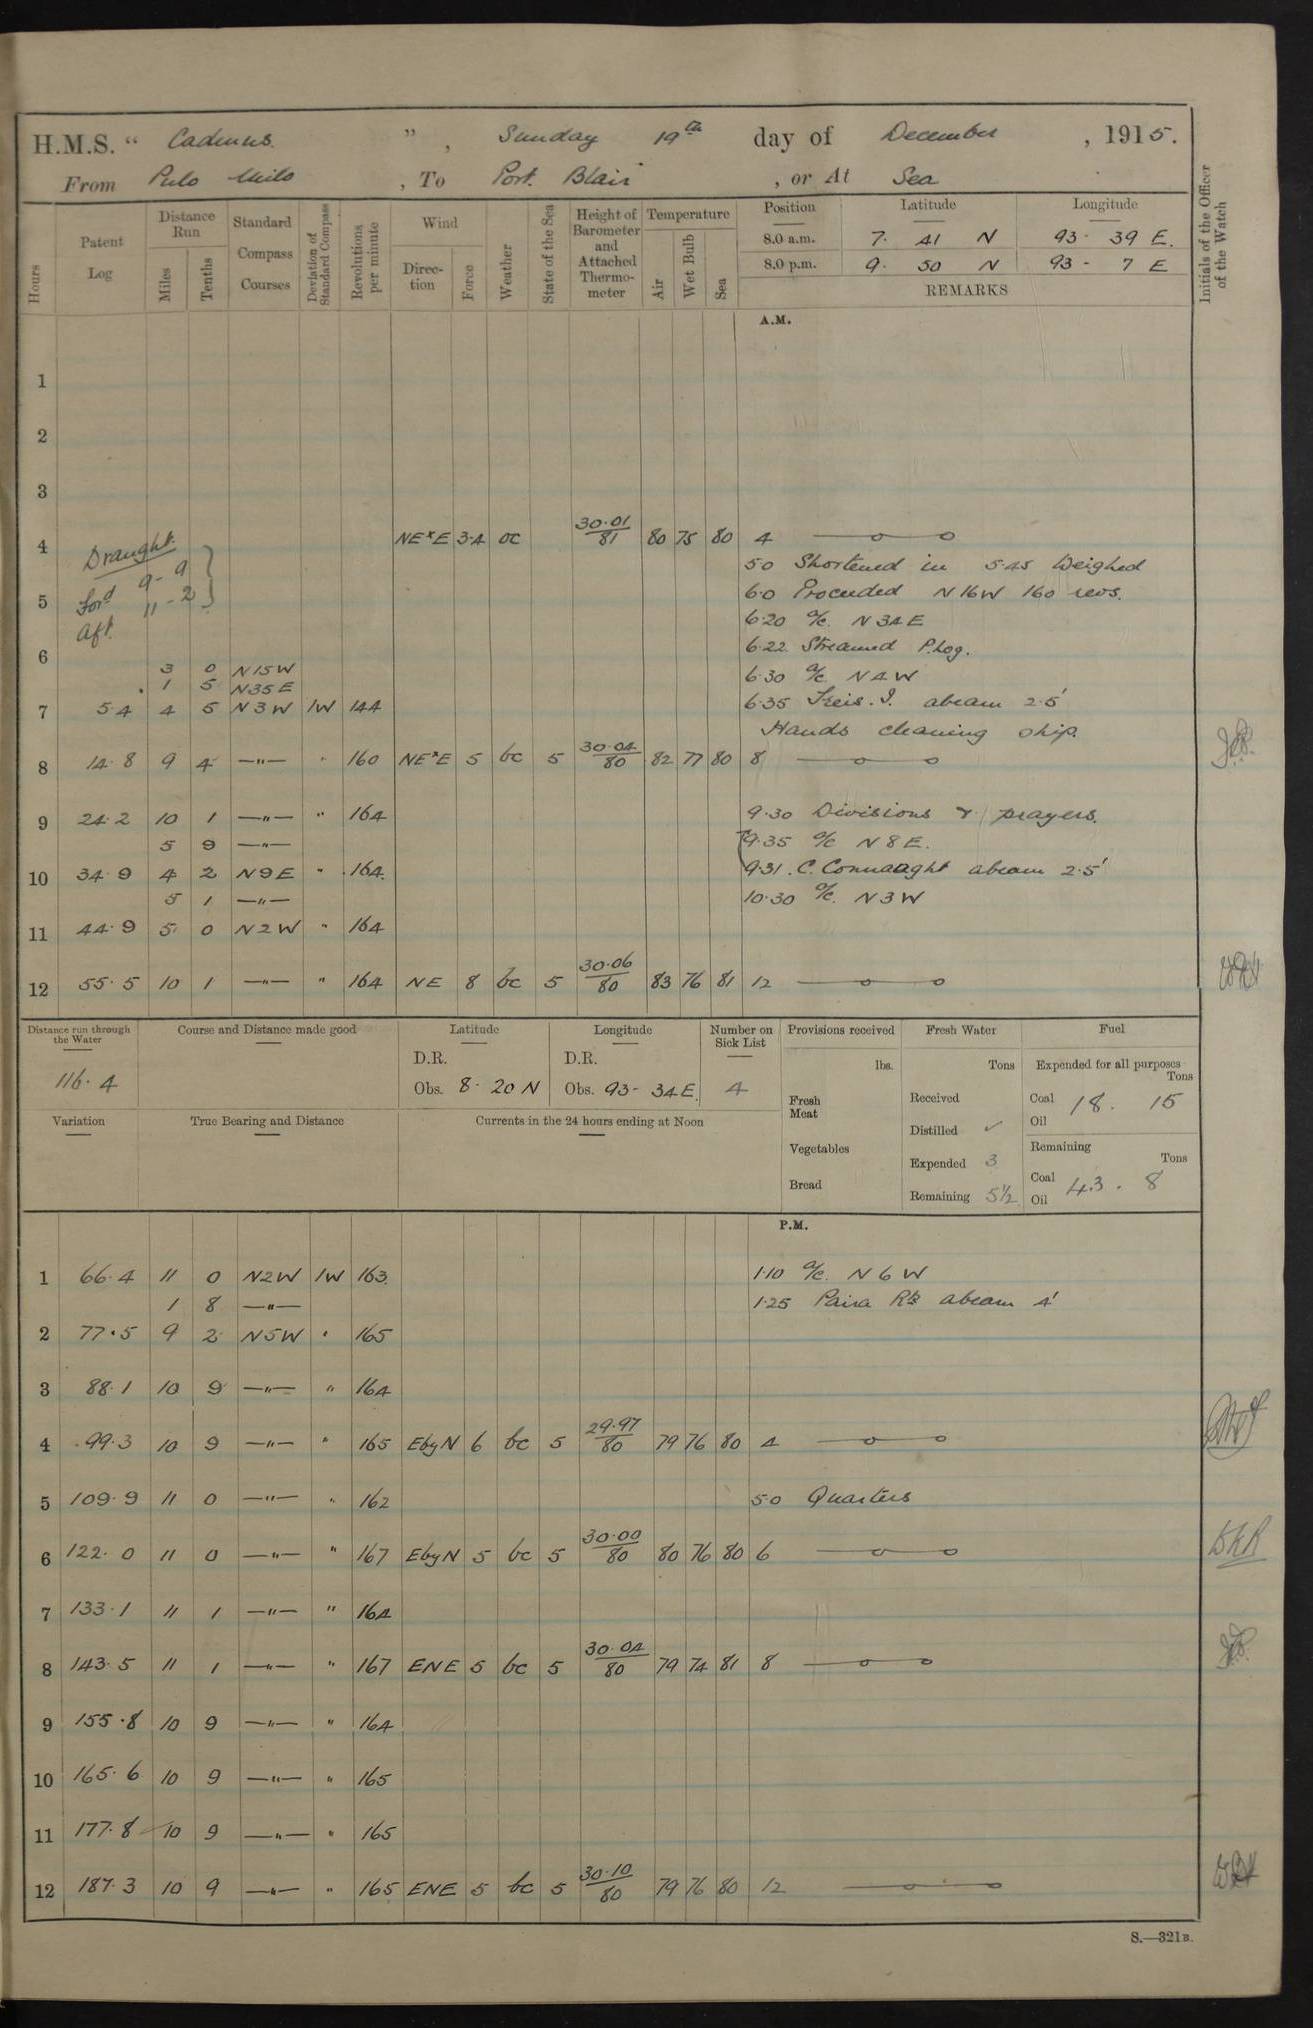 H.M.S. “ Cadmus ” , Sunday 19th day of December , 1915.
From Pulo Milo , To Port Blair , or At Sea
Hours
Patent Log
Distance Run
Miles
Tenths
Standard Compass Courses
Deviation of Standard Compass
Revolutions per minute
Wind
Direction
Force
Weather
State of the Sea
Height of Barometer and Attached Thermometer
Temperature
Air
Wet Bulb
Sea
Position Latitude Longitude
8.0 a.m. 7. 41 N 93 - 39 E.
8.0 p.m. 9. 50 N 93 - 7 E
REMARKS
Initials of the Officer of the Watch
A.M.
1
2
3
4 NE x E 3.4 oc 30.01/81 80 75 80 4
Draught
Ford 9 - 9
Aft. 11 - 2
5.0 Shortened in 5.45 Weighed
5 6.0 Proceeded N16W 160 revs.
6.20 a/c. N34E
6 6.22 Streamed P.Log.
3 0 N15W 6.30 a/c N4W
1 5 N35E
7 5.4 4 5 N3W 1W 144 6.35 Treis. I. abeam 2.5'
Hands cleaning ship.
8 14.8 9 4 —"— " 160 NE x E 5 bc 5 30.04/80 82 77 80 8
9 24.2 10 1 —"— " 164 9.30 Divisions & prayers.
5 9 —"— 9.35 a/c N8E.
10 34.9 4 2 N9E " 164. 9.31. C. Connaught abeam 2.5'
5 1 —"— 10.30 a/c. N3W
11 44.9 5 0 N2W " 164
12 55.5 10 1 —"— " 164 NE 8 bc 5 30.06/80 83 76 81 12
Distance run through the Water
116.4
Course and Distance made good
Latitude
D.R.
Obs. 8 - 20 N
Longitude
D.R.
Obs. 93 - 34 E.
Number on Sick List
4
Provisions received
lbs.
Fresh Meat
Vegetables
Bread
Fresh Water
Tons
Received
Distilled ✓
Expended 3
Remaining 5½
Fuel
Expended for all purposes
Tons
Coal 18. 15
Oil
Remaining
Tons
Coal 43. 8
Oil
Variation
True Bearing and Distance
Currents in the 24 hours ending at Noon
P.M.
1 66.4 11 0 N2W 1W 163. 1.10 a/c. N6W
1 8 —"— 1.25 Paira Rk abeam 4'
2 77.5 9 2 N5W " 165
3 88.1 10 9 —"— " 164
4 99.3 10 9 —"— " 165 EbyN 6 bc 5 29.97/80 79 76 80 4
5 109.9 11 0 —"— " 162 5.0 Quarters
6 122.0 11 0 —"— " 167 EbyN 5 bc 5 30.00/80 80 76 80 6
7 133.1 11 1 —"— " 164
8 143.5 11 1 —"— " 167 ENE 5 bc 5 30.04/80 79 74 81 8
9 155.8 10 9 —"— " 164
10 165.6 10 9 —"— " 165
11 177.8 10 9 —"— " 165
12 187.3 10 9 —"— " 165 ENE 5 bc 5 30.10/80 79 76 80 12
S.—321B.